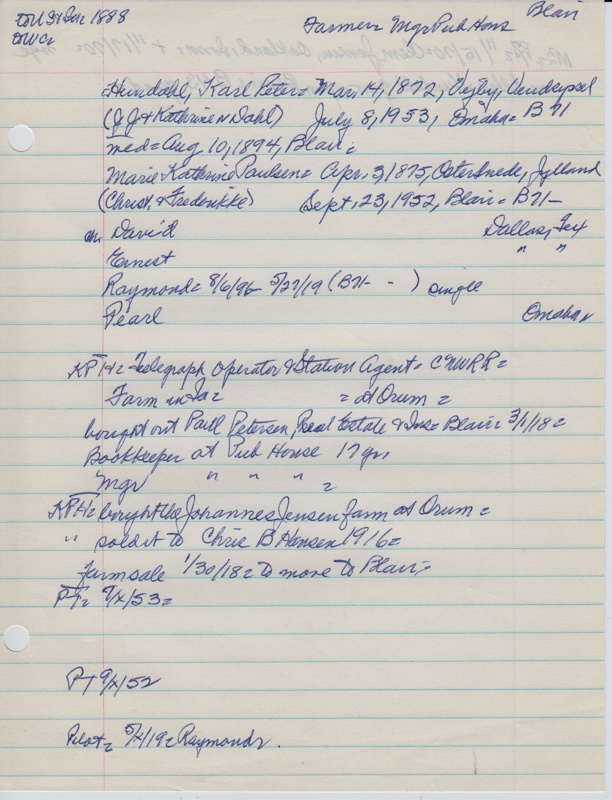 to U.S. Dec 1888
to WC=
Farmer= Mgr Pub Hous Blair
=Hundahl, Karl Peter= Mar, 14, 1872, Vejby, Vendsyssel
(J J & Kathrine N Dahl) July 8, 1953, Omaha= B 71
med= Aug 10, 1894, Blair=
Marie Kathrine Paulsen= Apr. 3, 1875, Oster Snede, Jylland
(Christ. & Frederikke) Sept, 23, 1952, Blair= B 71-
ch. David Dallas, Tex
Ernest " "
Raymond= 8/6/96- 5/27/19 (B71- - ) single
Pearl Omaha
KPH= Telegraph Operator & Station Agent= CNWRR=
Farm in Ia= = at Orum=
bought out Paul Petersen, Real Estate & Ins= Blair= 3/1/18=
Bookkeeper at Pub House 17 yrs
Mgr " " " =
KPH= bought the Johannes Jensen farm at Orum=
" sold it to Chris B Hansen 1916=
Farm sale 1/30/18= to move to Blair=
PT= 7/x/53=
PT 9/x/52
Pilot= 5/x/19= Raymond=.